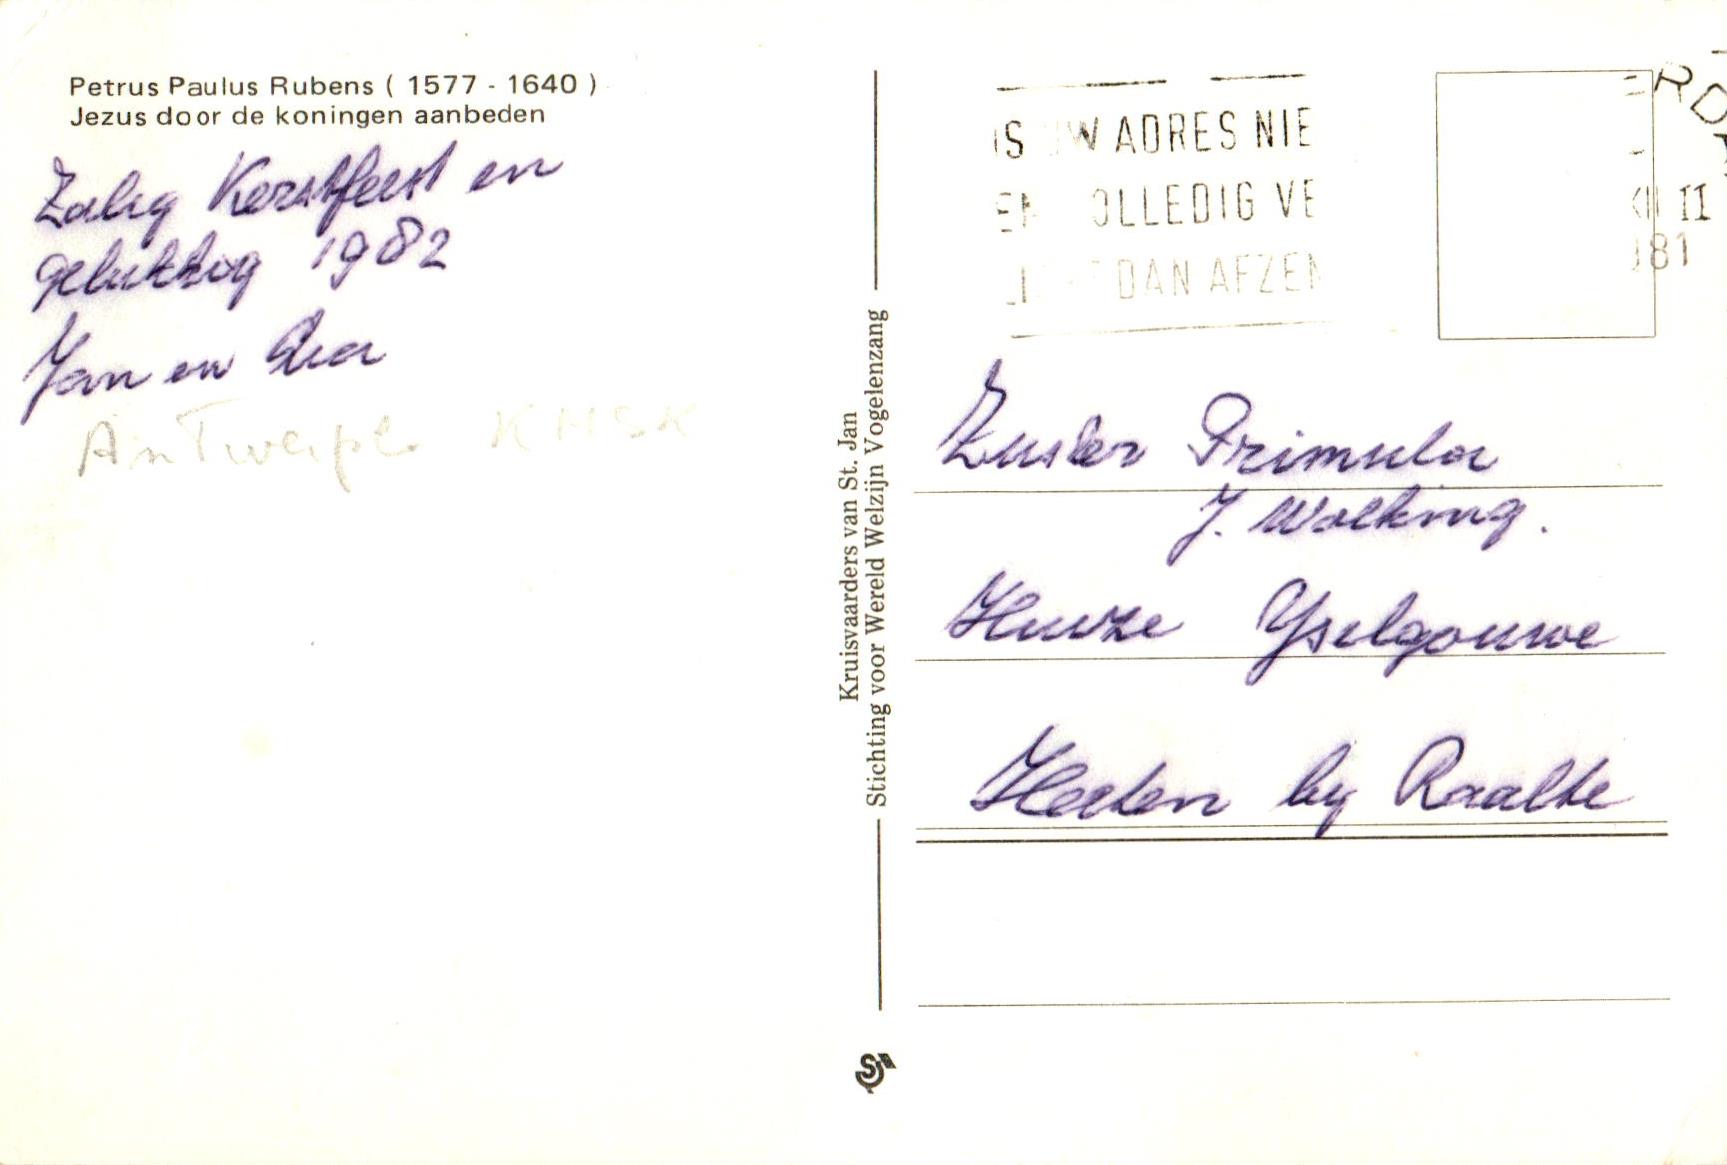 Petrus Paulus Rubens ( 1577 - 1640 )
Jezus door de koningen aanbeden
Zalig Kerstfeest en
gelukkig 1982
Jan en
Antwerpen KMSK
Kruisvaarders van St. Jan
Stichting voor Wereld Welzijn Vogelenzang
IS UW ADRES NIE
EN OLLEDIG VE
DAN AFZEN
RD
XII II
981
Zuster Primula
J. Wolking.
Huize Yselgouwe
Heeten by Raalte